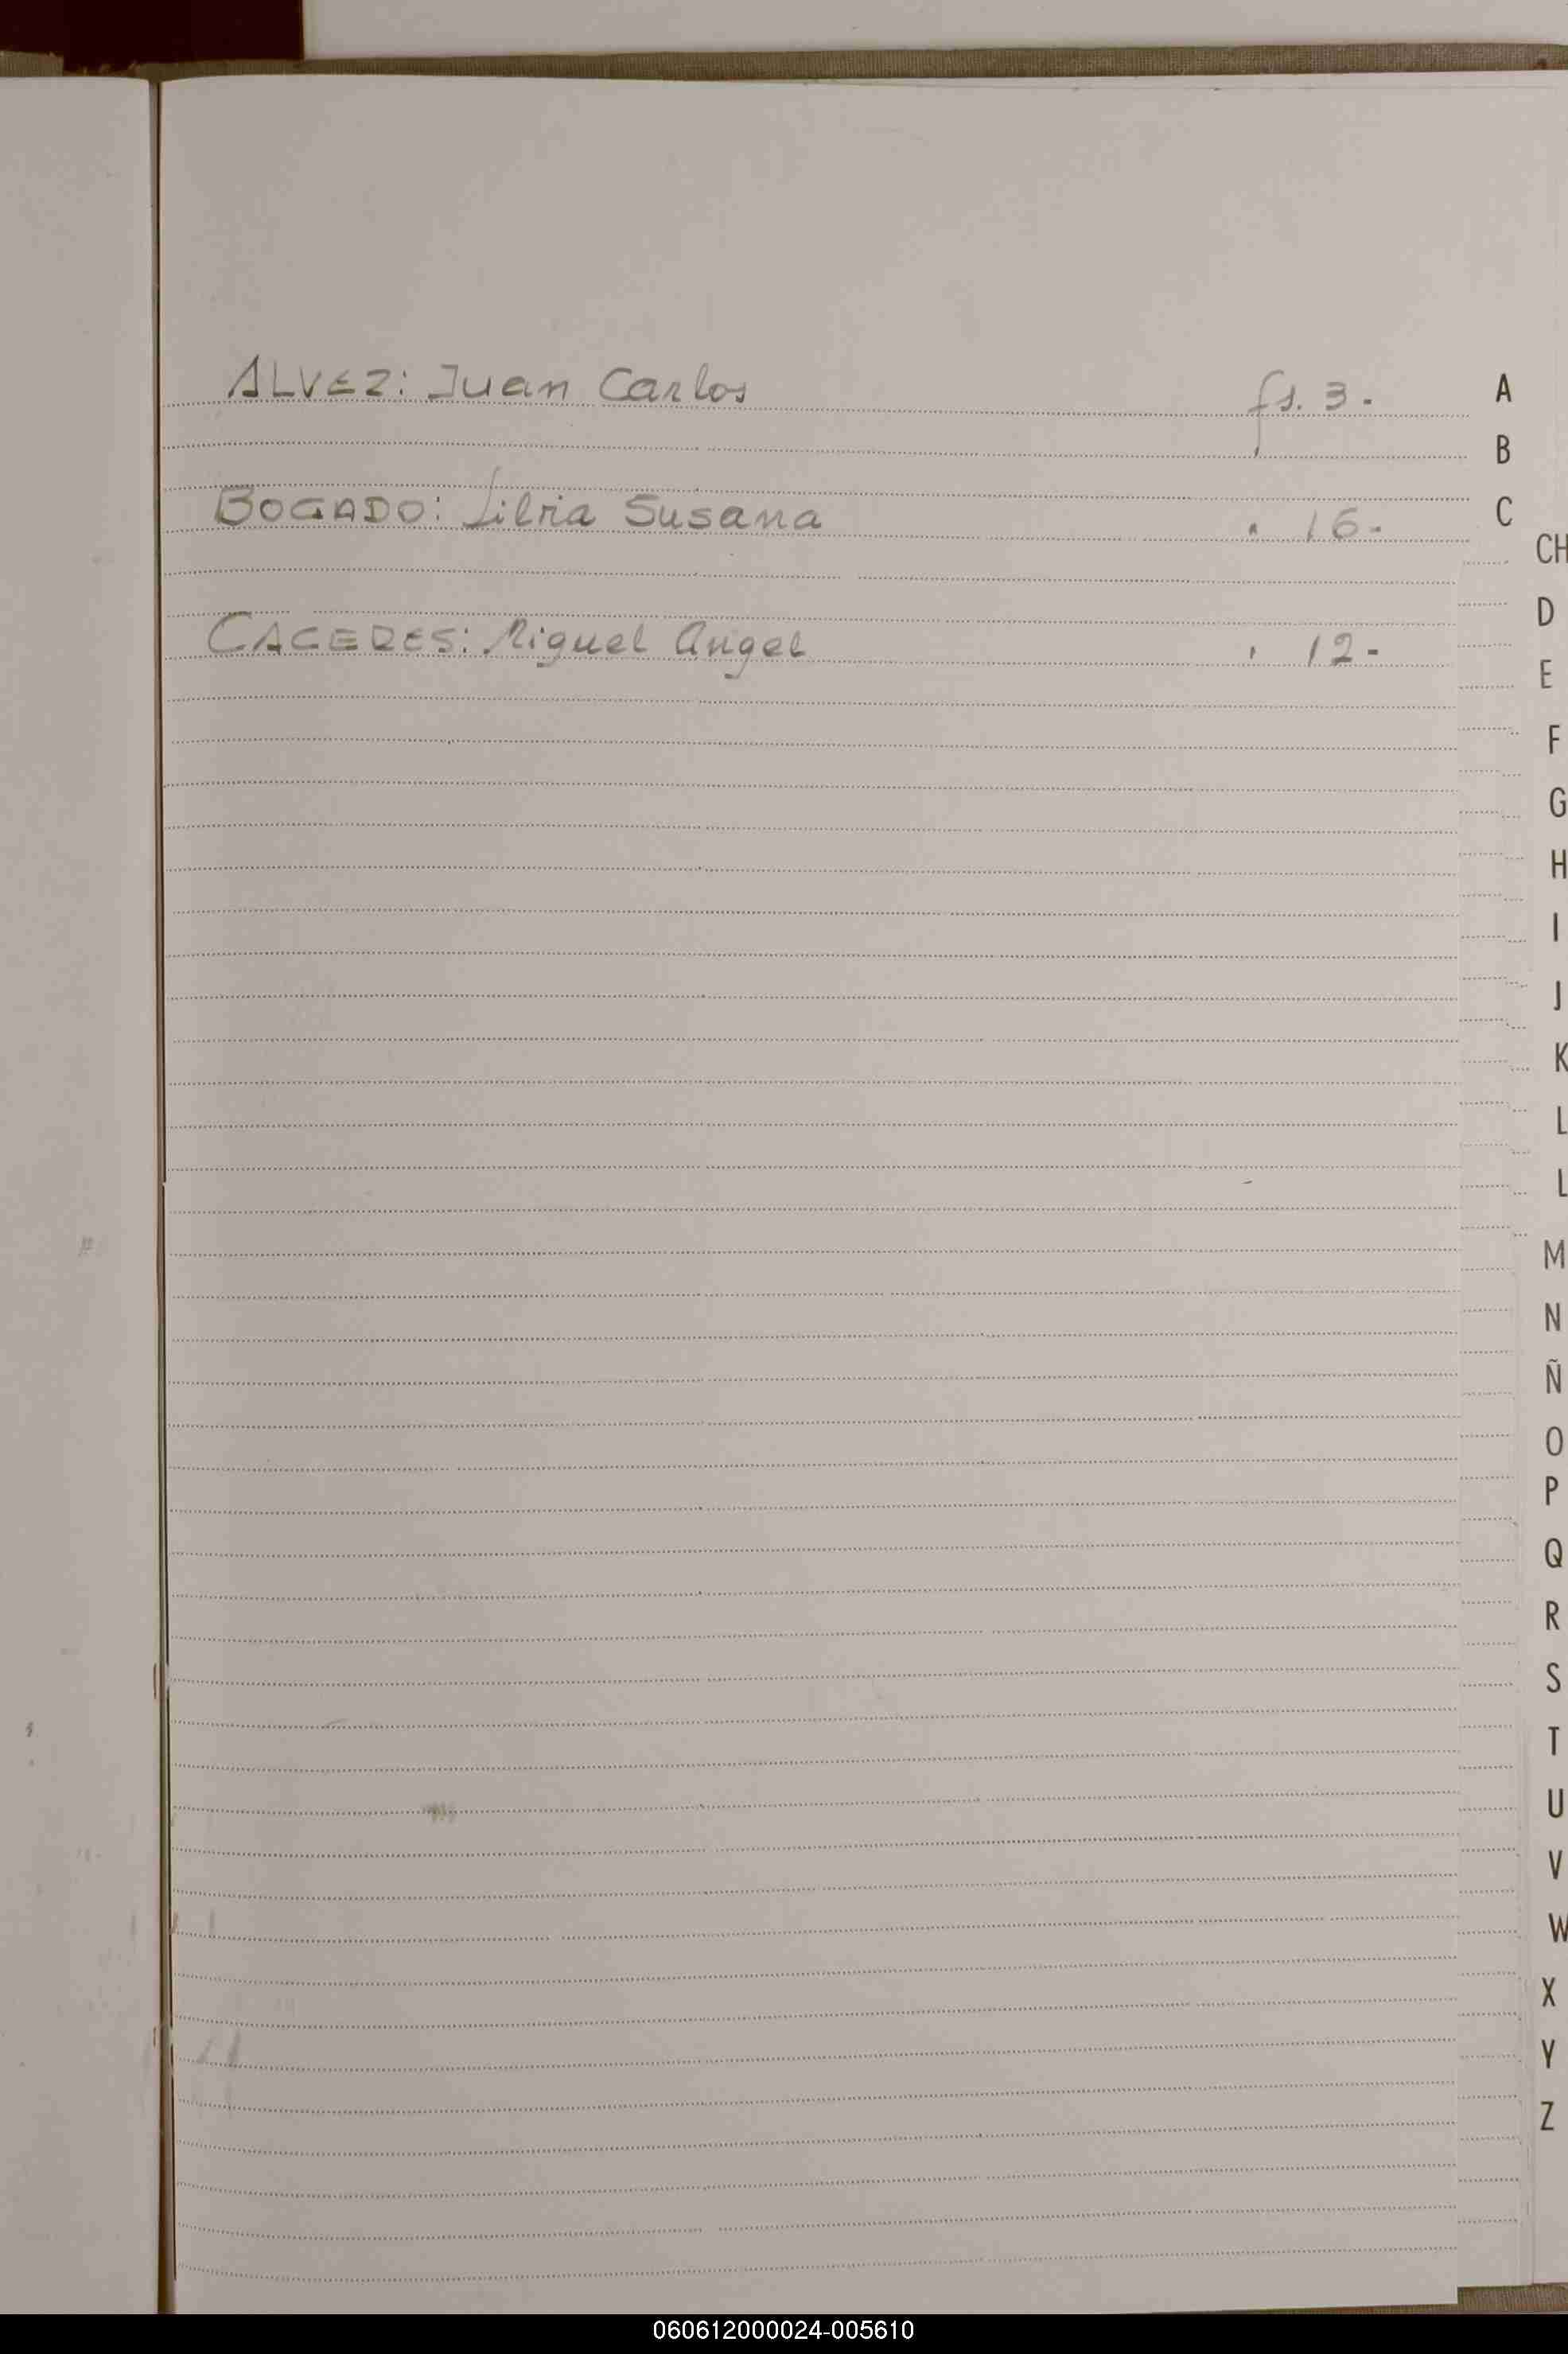 ALVEZ: Juan Carlos fs. 3.
A
B
BOGADO: Silvia Susana " 16.
C
CH
D
CACERES: Miguel Angel " 12-
E
F
G
H
I
J
K
L
L
M
N
Ñ
O
P
Q
R
S
T
U
V
W
X
Y
Z
060612000024-005610